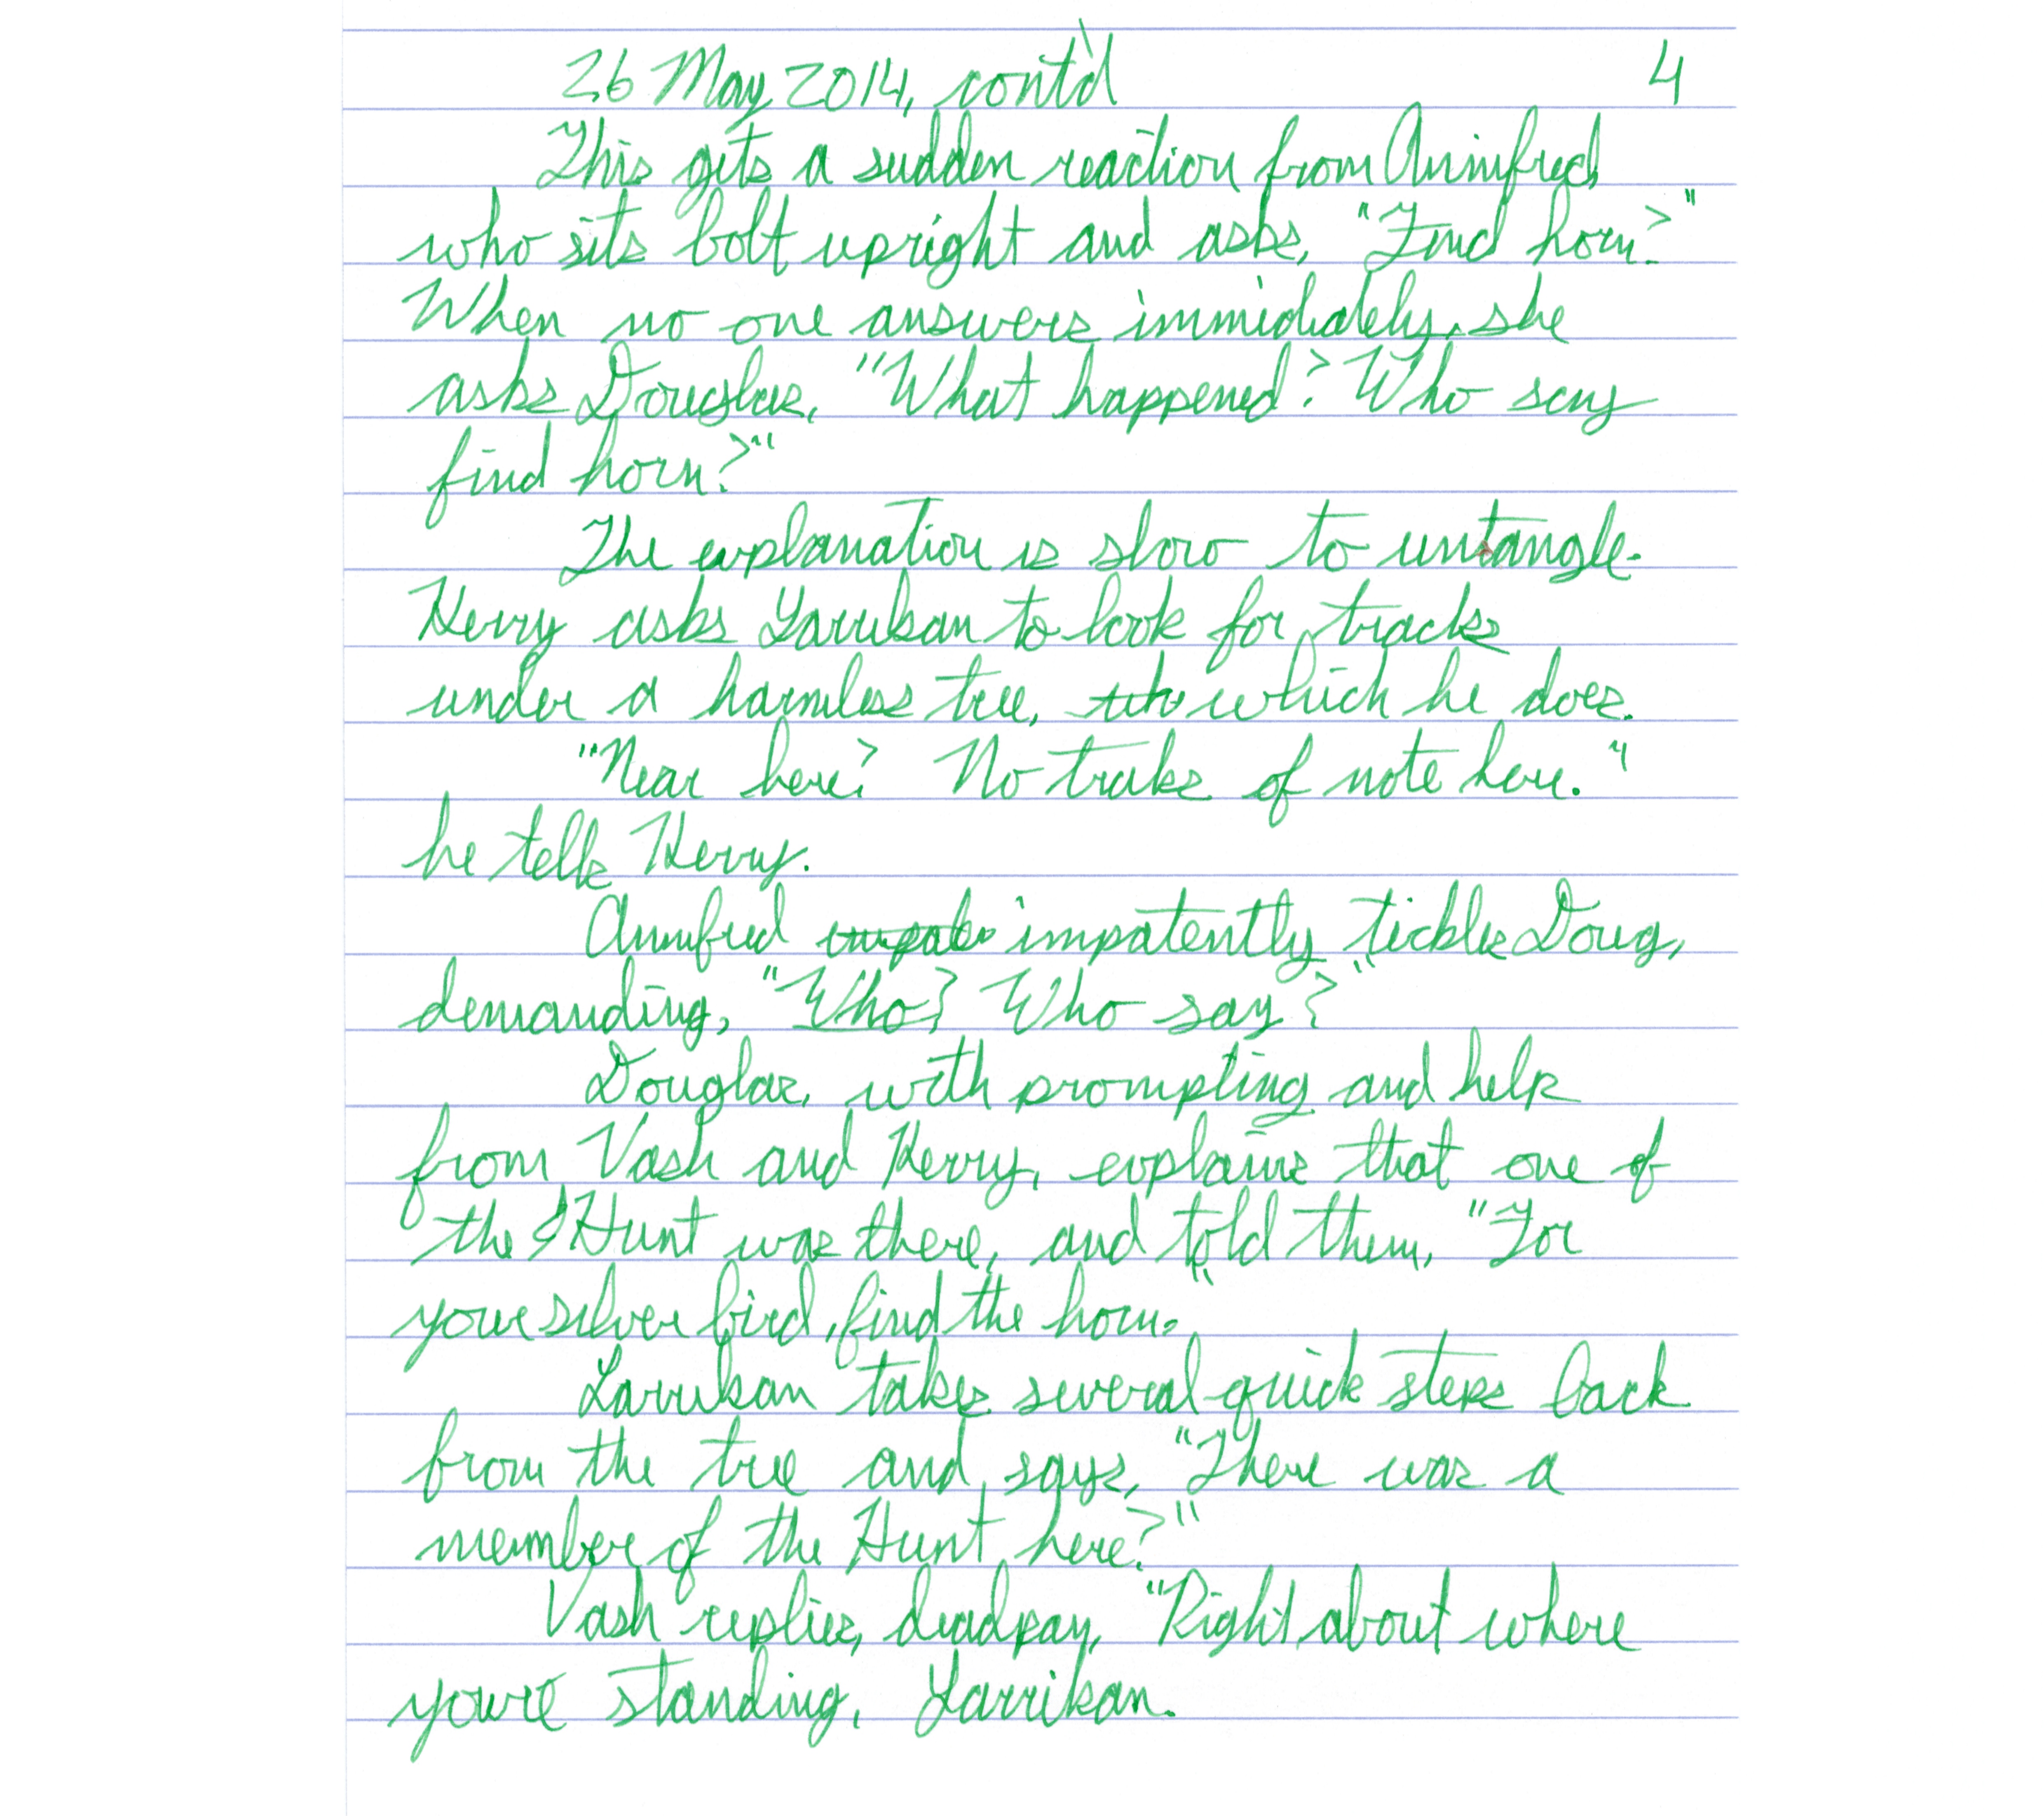 26 May 2014, cont'd 4
This gets a sudden reaction from Annifred,
who sits bolt upright and asks, "Find horn?"
When no one answers immidiately, she
asks Douglas, "What happened? Who say
find horn?"
The explanation is slow to untangle.
Kerry asks Larrikan to look for tracks
under a harmless tree, which he does.
"Near here? No traks of note here."
he tells Kerry.
Annifred impatently tickles Doug,
demanding, "Who? Who say?"
Douglas, with prompting and help
from Vash and Kerry, explains that one of
the Hunt was there, and told them, "For
your silver bird, find the horn."
Larrikan takes several quick steps back
from the tree and says, "There was a
member of the Hunt here?"
Vash replies, deadpan, "Right about where
youre standing, Larrikan.